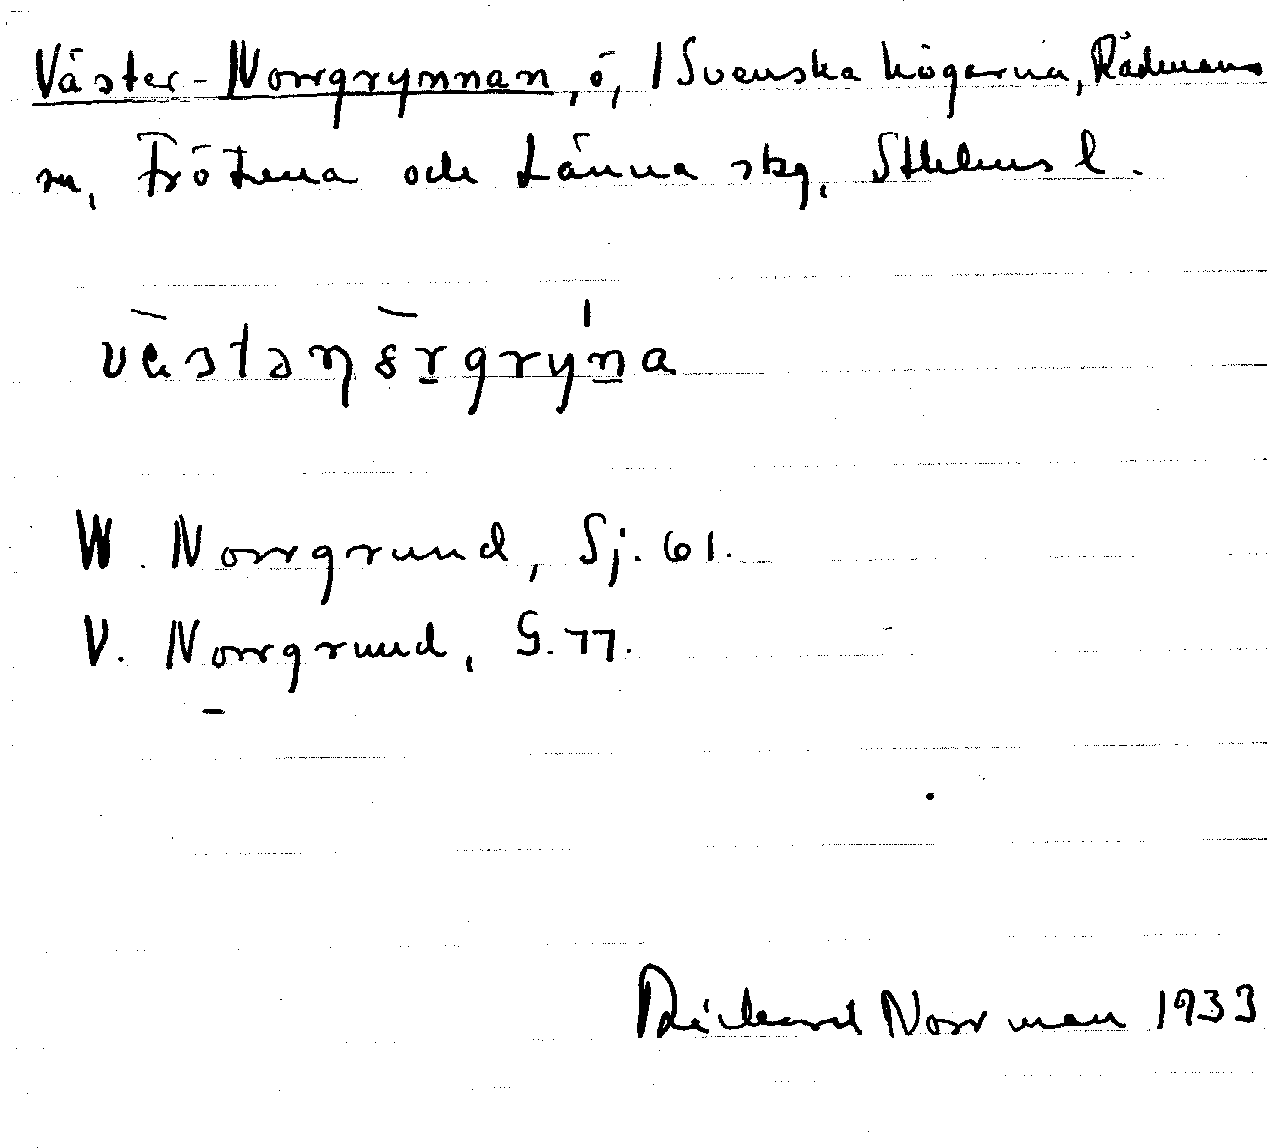 Väster-Norrgrynnan, ö, / Svenska högarna, Rådmansö
sn, Frötuna och Länna skg, Sthlms l.
W. Norrgrund, Sj. 61.
V. Norrgrund, G. 77.
Rickard Norrman 1933